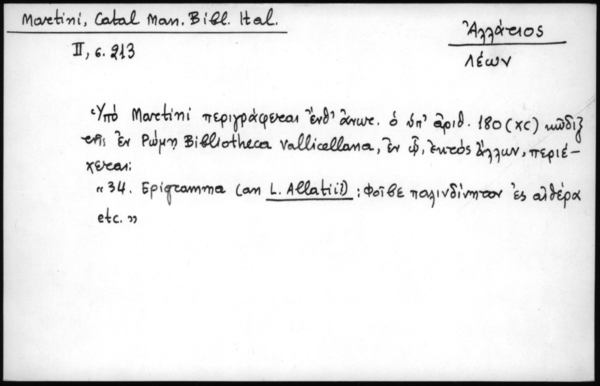 Martini, Catal Man. Bibl. Ital.
II, σ. 213
Ἀλλάτιος
Λέων
Ὑπὸ Martini περιγράφεται ἔνθ' ἄνωτ. ὁ ὑπ' ἀριθ. 180 (XC) κῶδιξ
τῆς ἐν Ρώμῃ Bibliotheca Vallicellana, ἐν ᾧ, ἐκτὸς ἄλλων, περιέ-
χεται:
"34. Epigramma (an L. Allatii) : Φοῖβε παλινδίνητον ἐς αἰθέρα
etc."